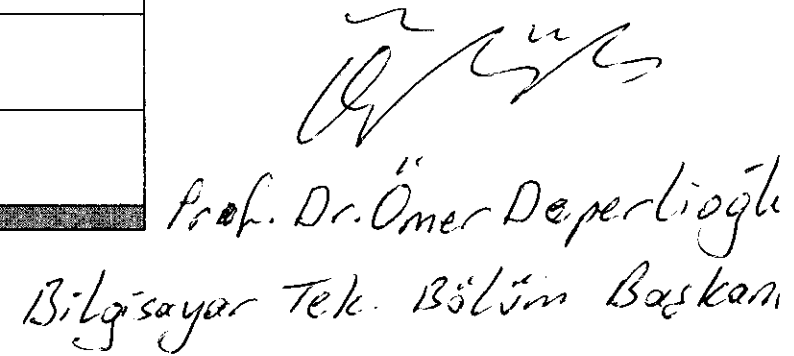 Prof. Dr. Ömer Deperlioğlu
Bilgisayar Tek. Bölüm Başkanı